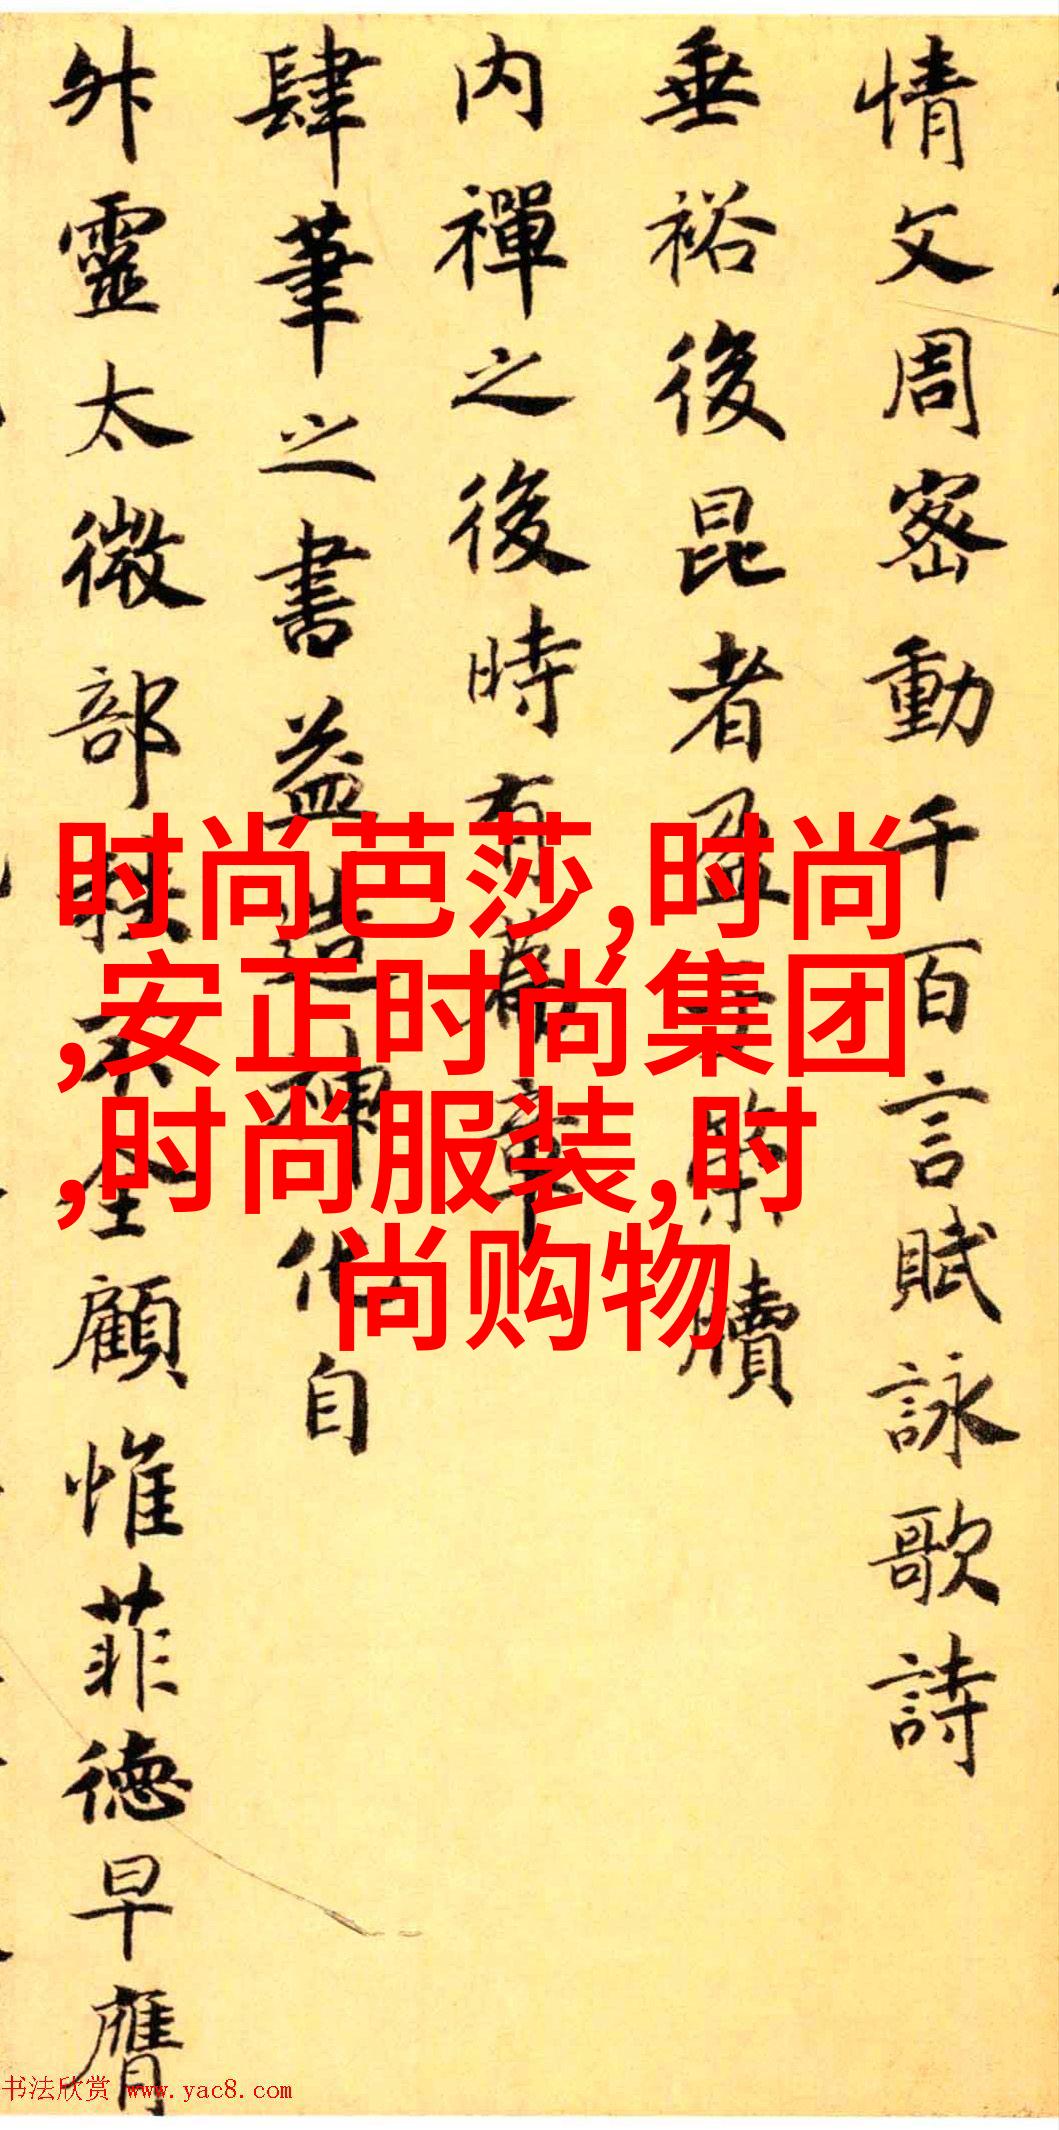 情文周密動千百言賦詠歌詩
垂裕後昆者盈 篋牘
内禪之後時有為章
肆筆之書益造神化自
升靈太微部 不全
顧惟菲德早膺
时尚芭莎,时尚
,安正时尚集团
,时尚服装,时
尚购物
书法欣赏 www.yac8.com